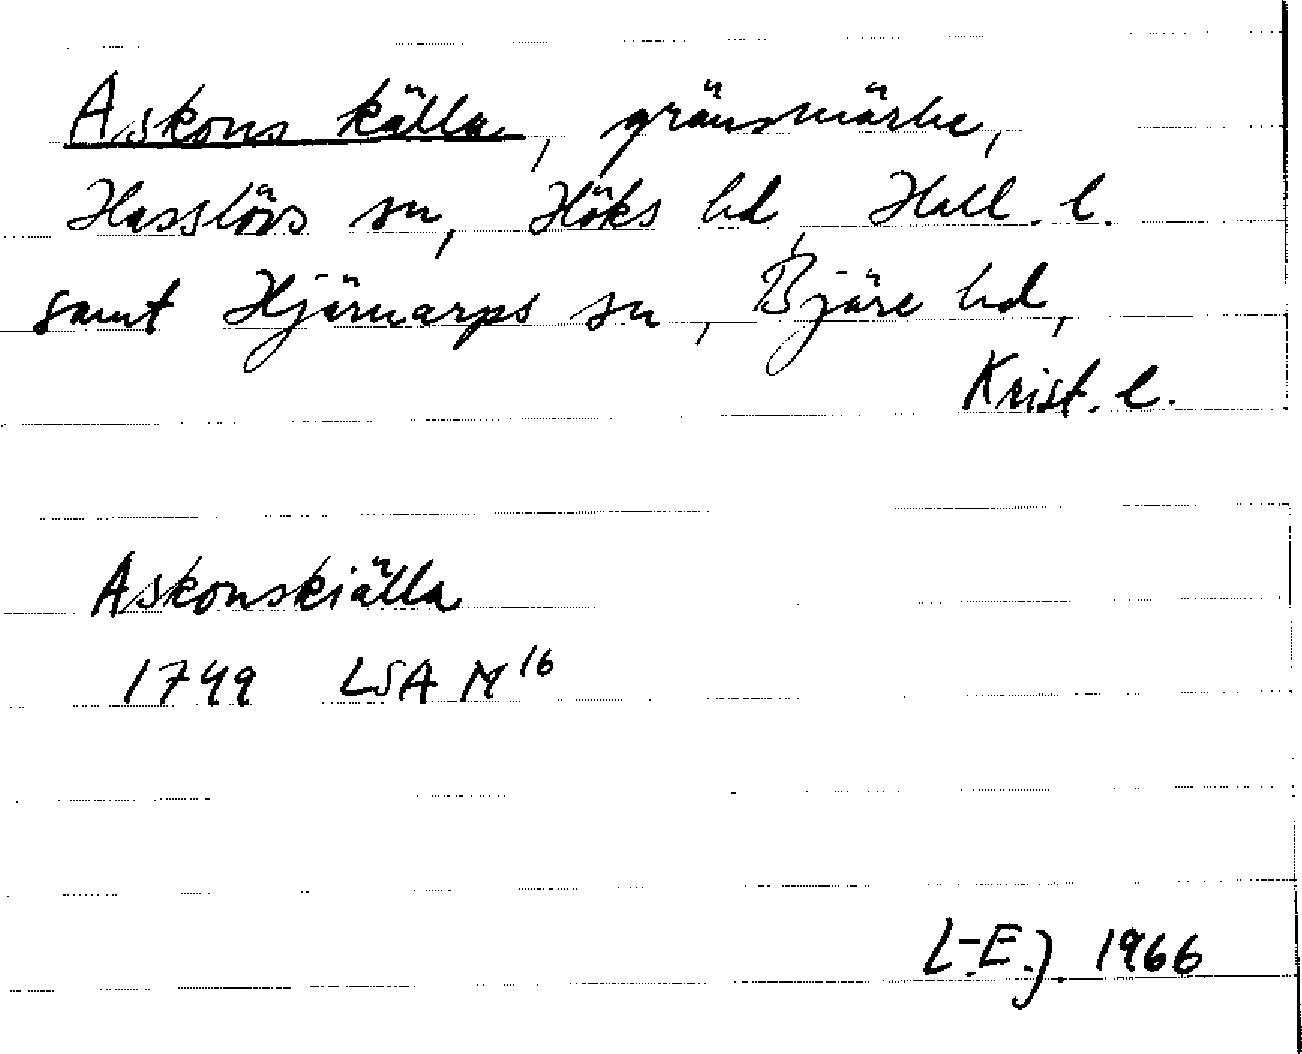 Askons källa, gränsmärke,
Hasslövs sn, Höks hd, Hall. l.
samt Hjärnarps sn, Bjäre hd,
Krist. l.
Askonskiälla
1749 LSA M 16
L-E.J. 1966